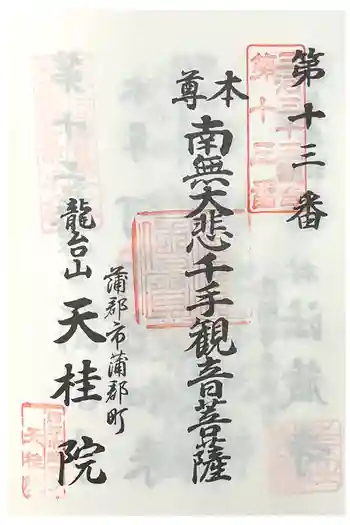 第十三番
本尊
南無大悲千手観音菩薩
蒲郡市蒲郡町
龍台山 天桂院
第十三番
天桂